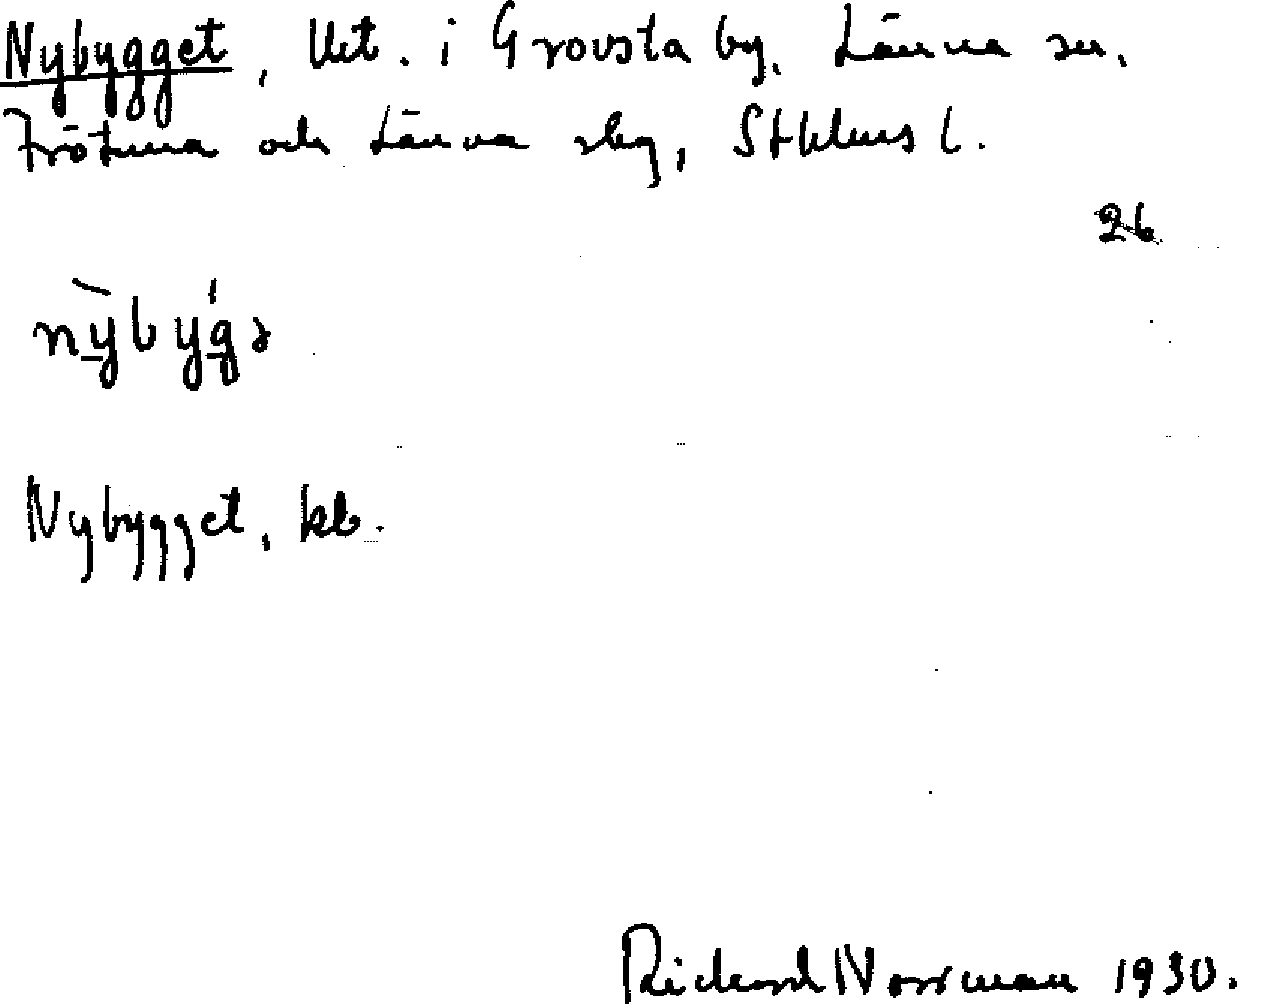 Nybygget, lht. i Grovsta by, Länna sn,
Frötuna och Länna skg, Sthlms l.
26
nỳbýgə
Nybygget, kb.
Richard Norrman 1930.